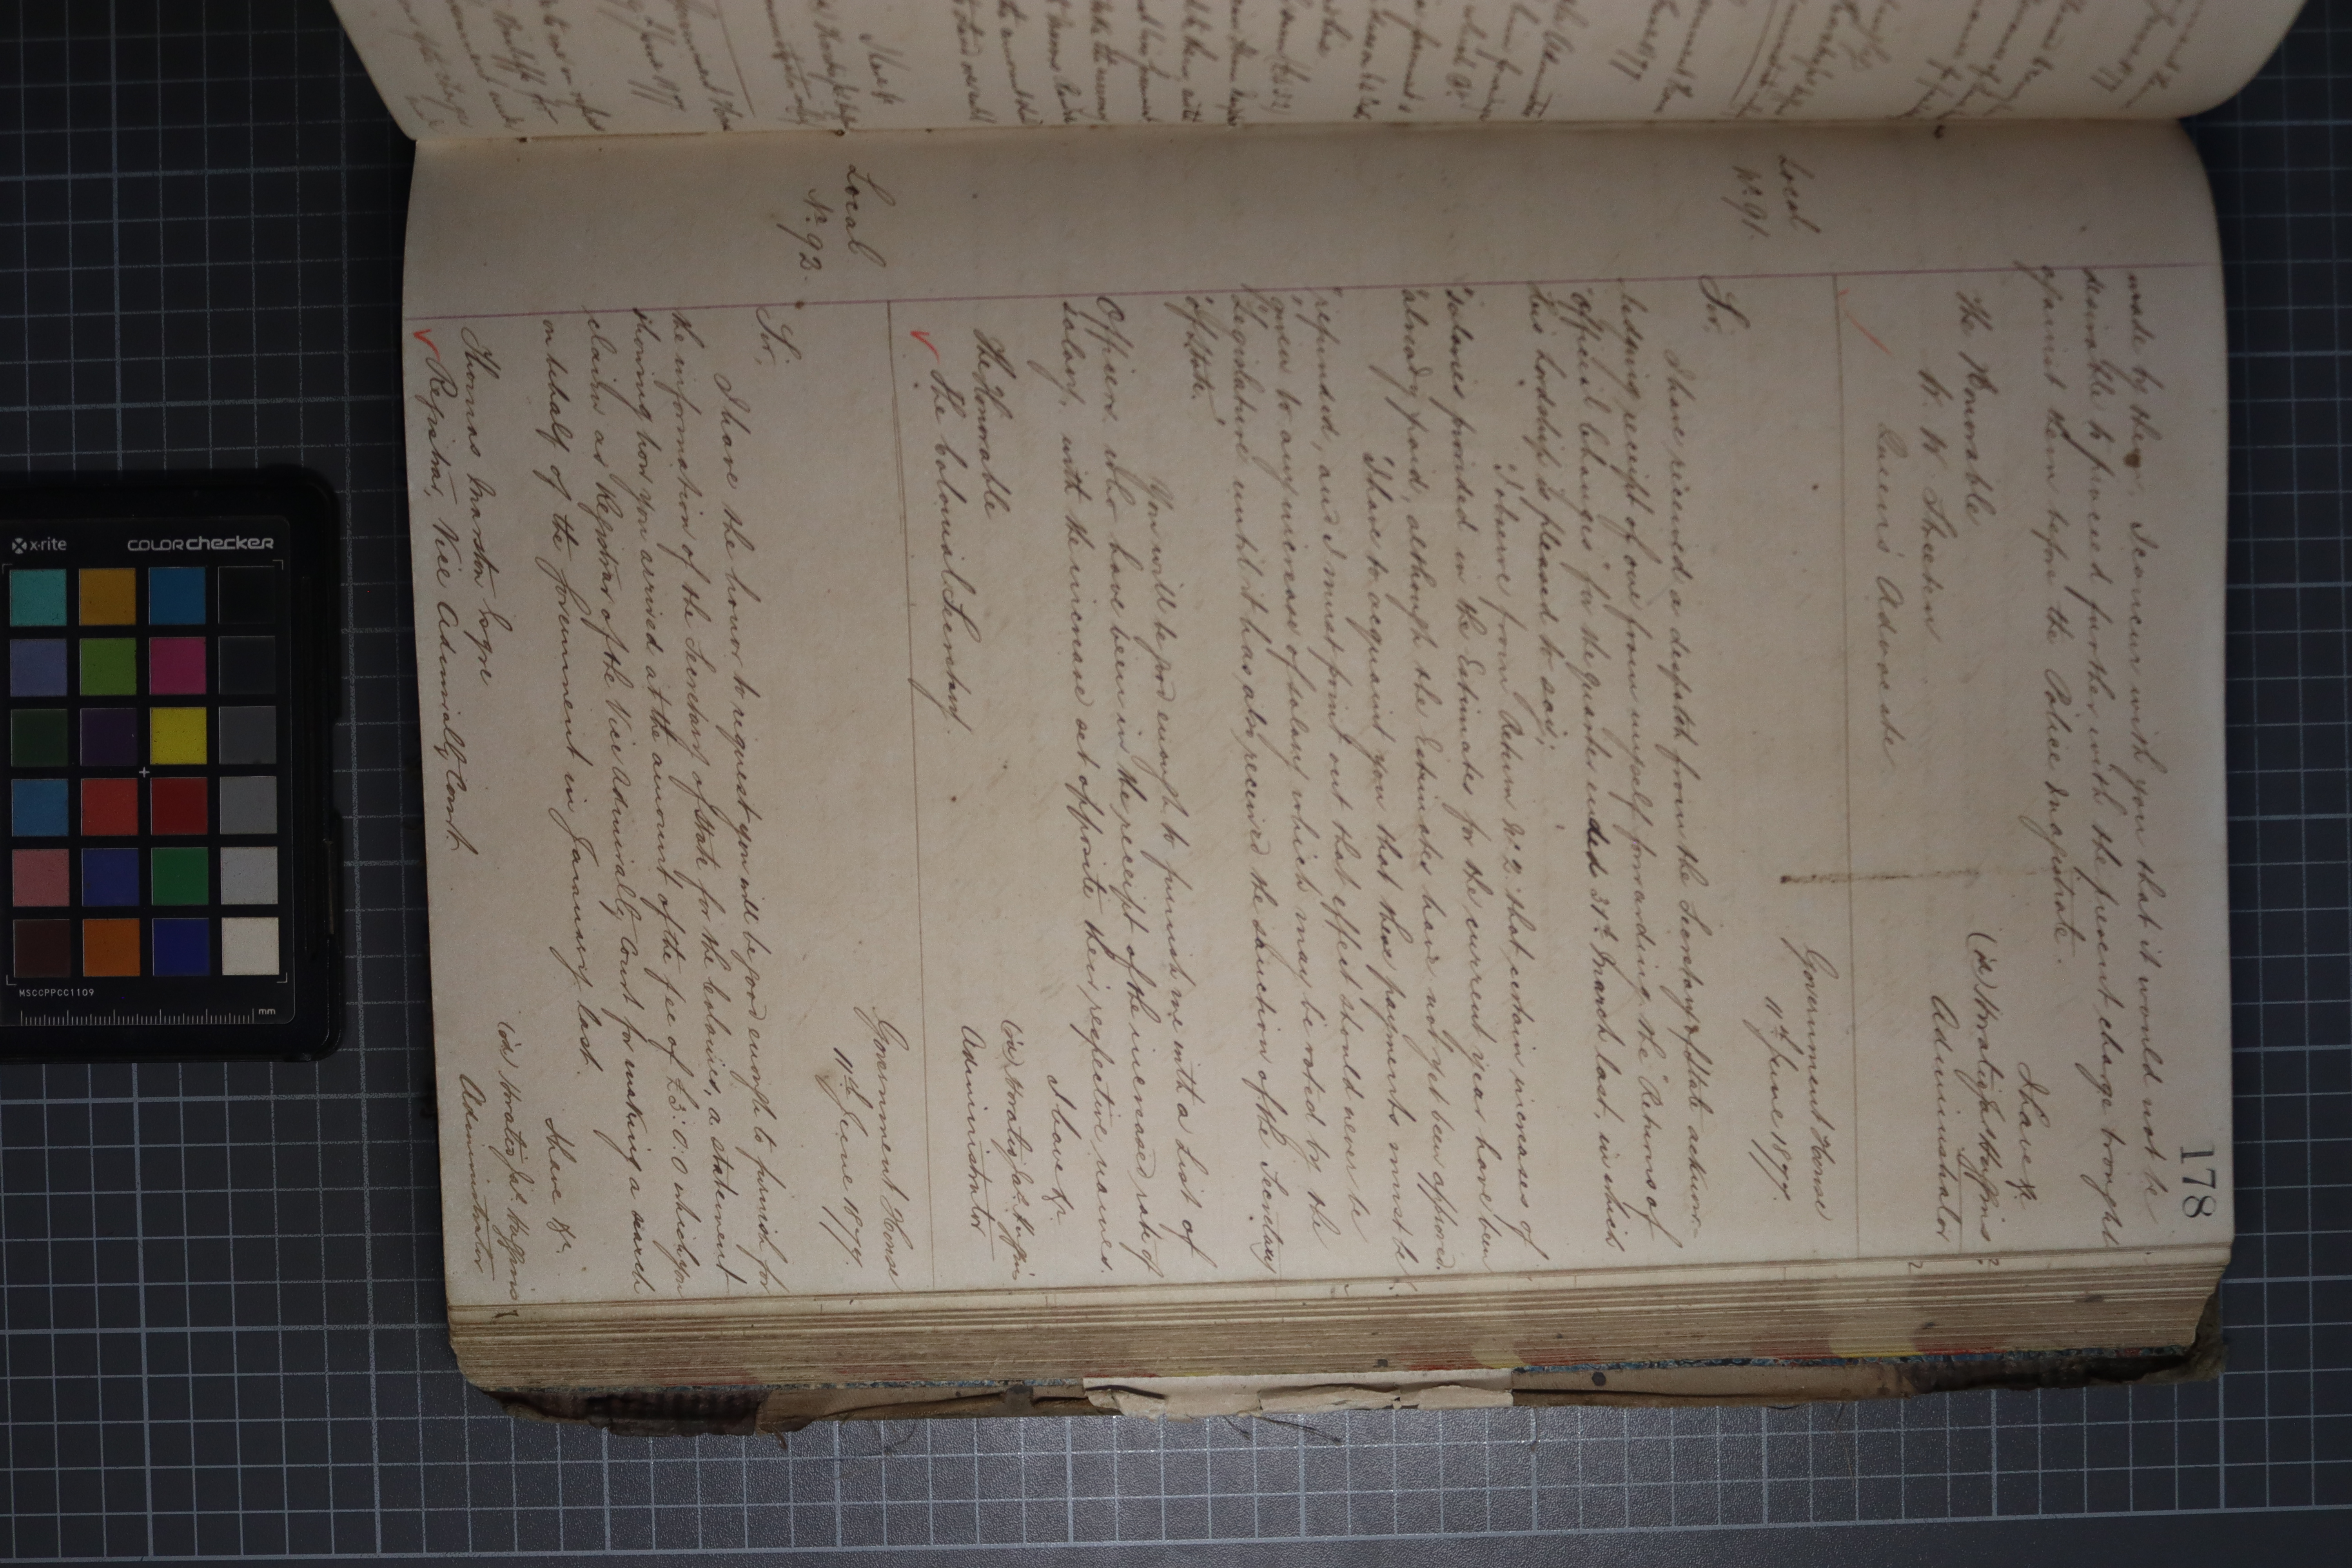 178
made by them, I concur with you that it would not be
desirable to proceed further with the present charge brought
against them before the Police Magistrate.
I have &c.
(sd) Horatio Jas. Huggins
Administrator
The Honorable
Queen's Advocate
Local
No. 91.
Government House
11th June 1877.
Sir,
I have received a despatch from the Secretary of State acknow-
ledging receipt of one from myself forwarding the "Returns of
"Official Changes" for the quarter ended 31st March last, in which
His Lordship is pleased to say;
"I observe from Return No. 2 that certain increases of
"salaries provided in the Estimates for the current year have been
"already paid, although the Estimates have not yet been approved.
"I have to acquaint you that these payments must be
"refunded, and I must point out that effect should never be
"given to any increase of salary which may be voted by the
"Legislature until it has also received the sanction of the Secretary
"of State."
You will be good enough to furnish me with a List of
Officers who have been in the receipt of the increased rate of
salary, with the increase set opposite their respective names.
I have &c.
(sd) Horatio Jas. Huggins
Administrator
The Honorable
The Colonial Secretary.
Local
No. 92.
Government House
11th June 1877.
Sir,
I have the honor to request you will be good enough to furnish for
the information of the Secretary of State for the Colonies, a statement
showing how you arrived at the amount of the fee of £3:0:0 which you
claim as Registrar of the Vice Admiralty Court for making a search
on behalf of the Government in January last.
I have &c.
(sd) Horatio Jas. Huggins
Administrator
Thomas Marston Cogre
Registrar, Vice Admiralty Court.
x-rite
colorchecker
MSCCPPCC1109
mm